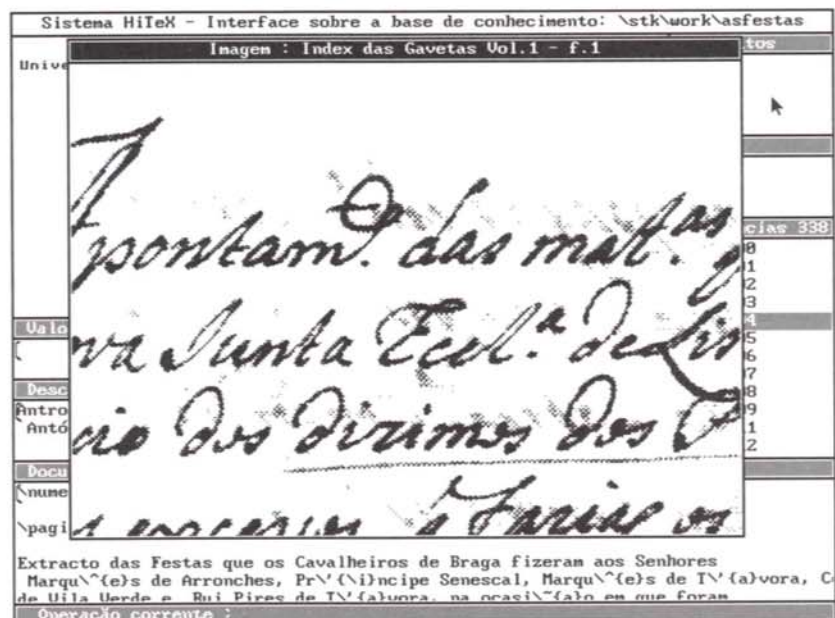 Sistema HiTeX - Interface sobre a base de conhecimento: \stk\work\asfestas
Imagem : Index das Gavetas Vol.1 - f.1
tos
Unive
pontam.º das mat.as
cias 338
va Junta Eccl.ª de Lis
Valo
[
Desc
Antro
Antó
cio dos dizimos dos
Docu
\nume
\pagi
Extracto das Festas que os Cavalheiros de Braga fizeram aos Senhores
Marqu\^{e}s de Arronches, Pr\'{\i}ncipe Senescal, Marqu\^{e}s de T\'{a}vora, C
de Vila Verde e Rui Pires de T\'{a}vora, na ocasi\~{a}o em que foram
Operação corrente :